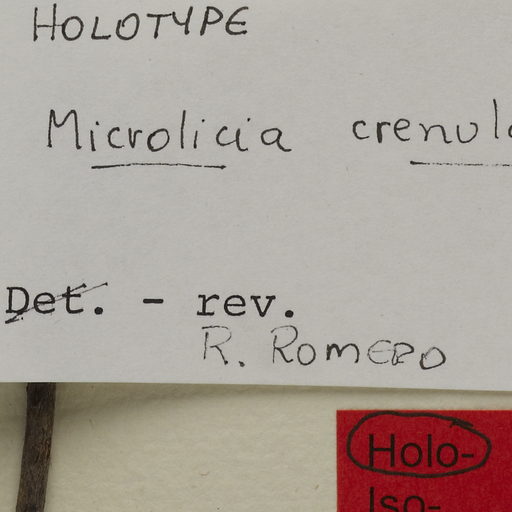 HOLOTYPE
Microlicia crenula
Det. - rev.
R. ROMERO
Holo-
Iso-